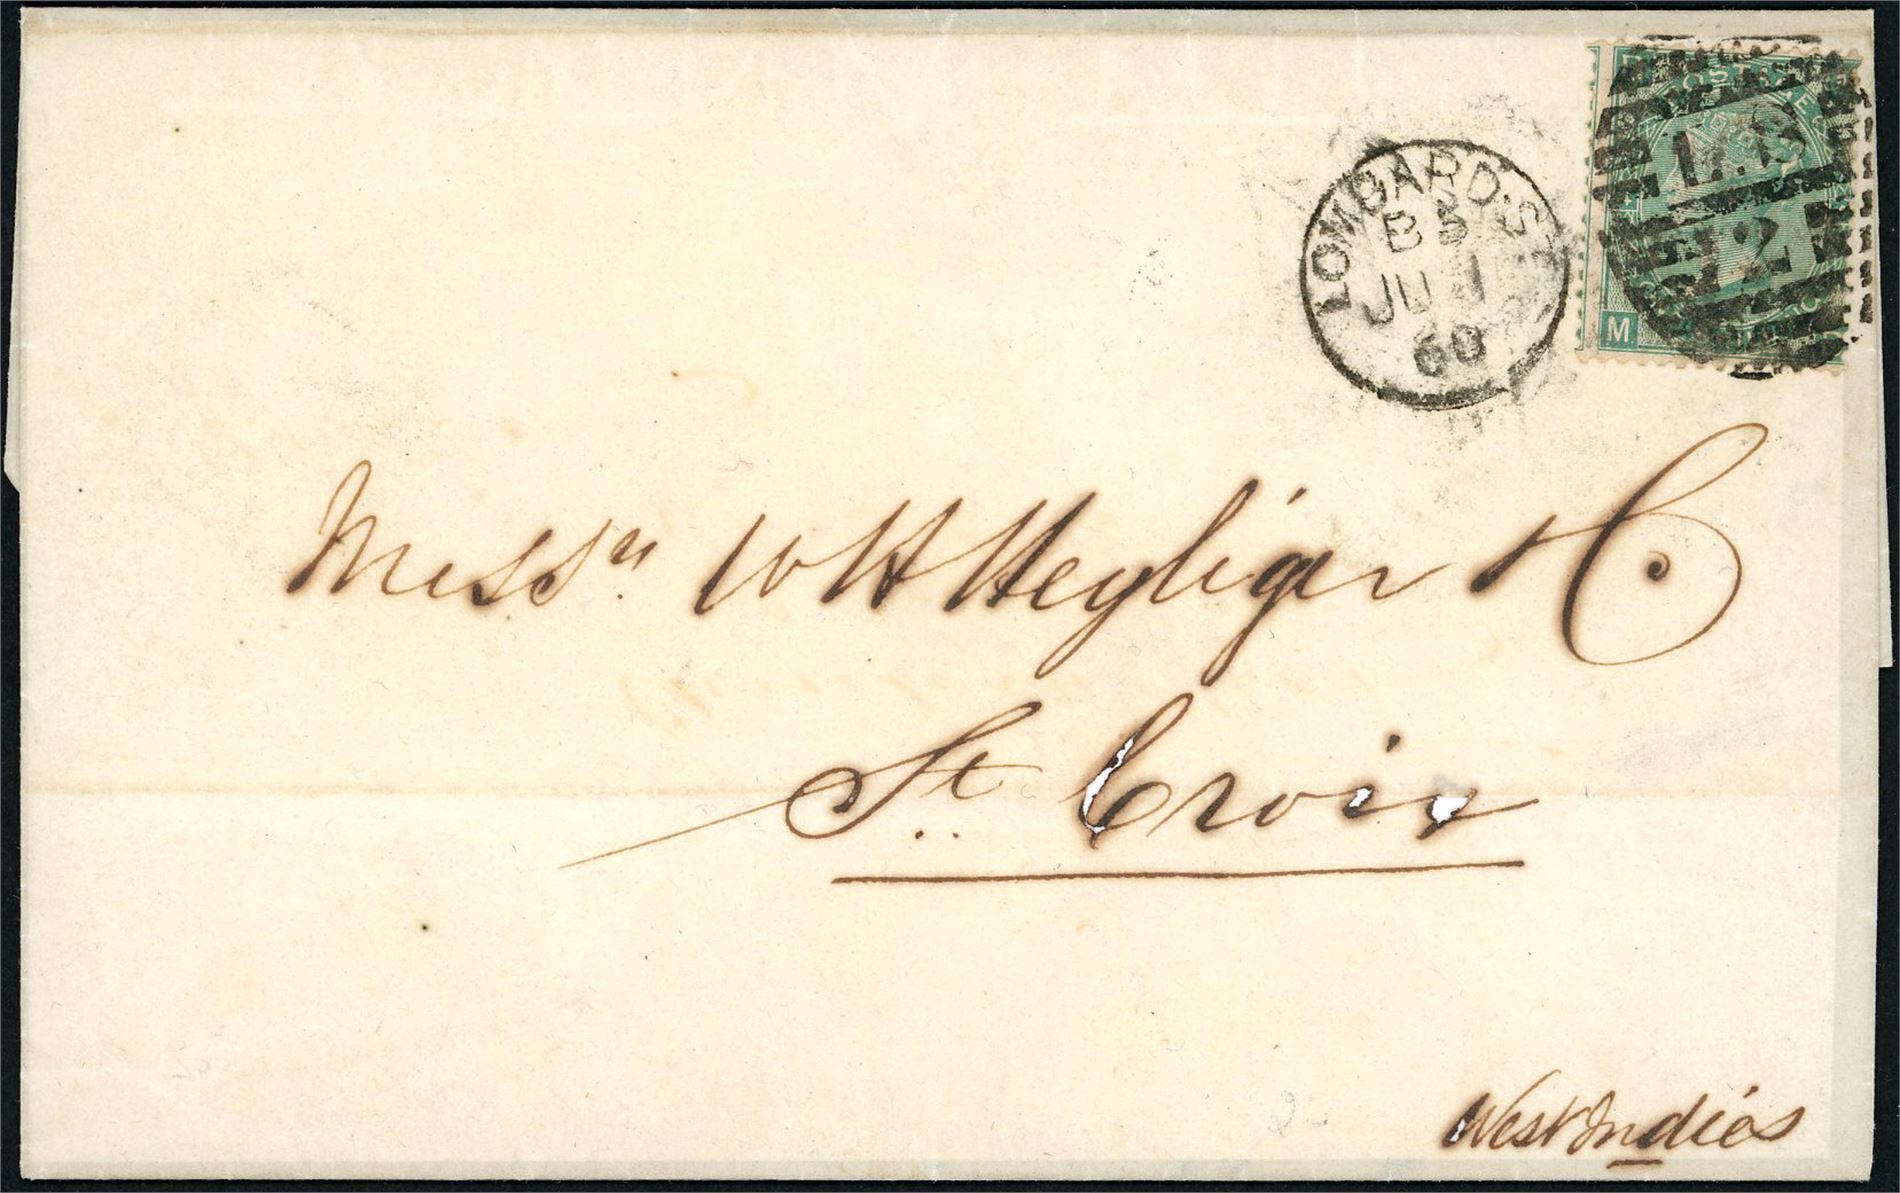 LOMBARD·ST
B 5
JU 1
60
L.S
12
M
Messrs. W H Heyliger & C
St. Croix
West Indies